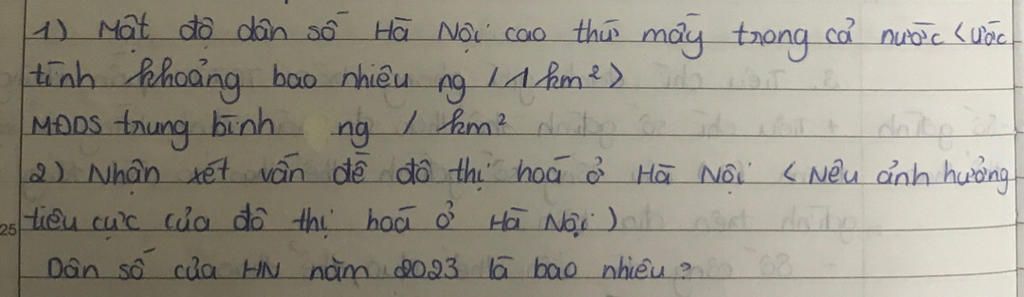 1) Mật độ dân số Hà Nội cao thứ mấy trong cả nước <ước
tính khoảng bao nhiêu ng / 1 km²>
MĐDS trung bình ng / km²
2) Nhận xét vấn đề đô thị hoá ở Hà Nội <Nêu ảnh hưởng
25 tiêu cực của đô thị hoá ở Hà Nội)
Dân số của HN năm 2023 là bao nhiêu?